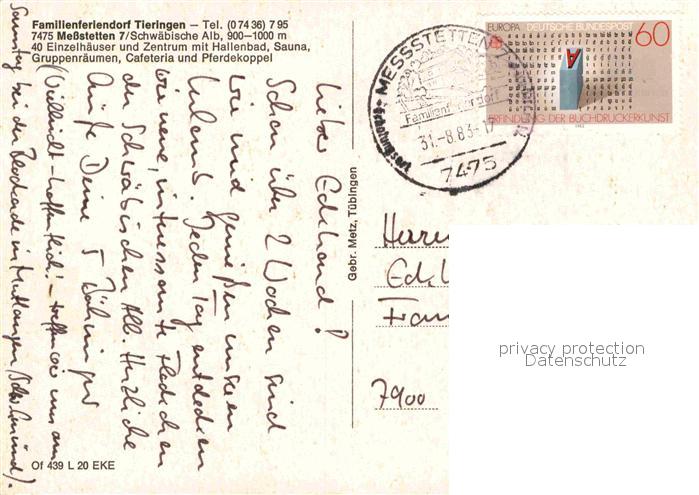 Familienferiendorf Tieringen — Tel. (0 74 36) 7 95
7475 Meßstetten 7/Schwäbische Alb, 900—1000 m
40 Einzelhäuser und Zentrum mit Hallenbad, Sauna,
Gruppenräumen, Cafeteria und Pferdekoppel
Lieber Eckehard!
Schon über 2 Wochen sind
wir und genießen unseren
Urlaub. Jeden Tag entdecken
wir neue, interessante Fleckchen
der Schwäbischen Alb. Herzliche
Grüße Deine 5
(Vielleicht – hoffentlich! – treffen wir uns am
Samstag bei der Blockade in Mutlangen (Schw. Gmünd).
Of 439 L 20 EKE
Gebr. Metz, Tübingen
MESSSTETTEN
Familienferiendorf
31.-8.83-17
7475
EUROPA DEUTSCHE BUNDESPOST 60
ERFINDUNG DER BUCHDRUCKERKUNST
Herrn
7900
privacy protection
Datenschutz